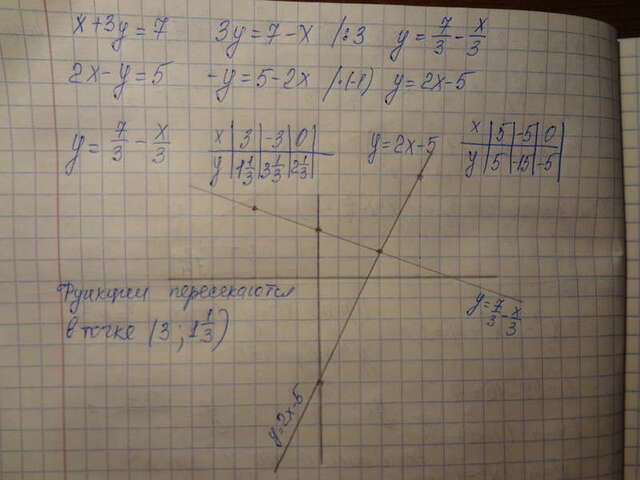 x+3y=7 3y=7-x /:3 y=7/3-x/3
2x-y=5 -y=5-2x /·(-1) y=2x-5
y=7/3-x/3 x|3|-3|0| y=2x-5 x|5|-5|0|
y|1 1/3|3 1/3|2 1/3| y|5|-15|-5|
Функции пересекаются
в точке (3; 1 1/3)
y=7/3-x/3
y=2x-5